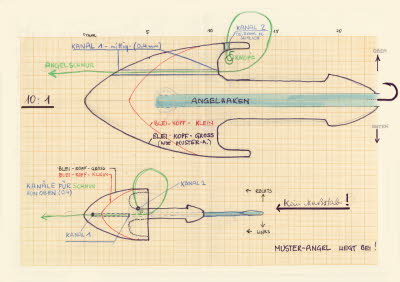 5
10
15
20
KANAL 1 - mittig (0,4mm)
KANAL 2
KNOPF
ANGELSCHNUR
OBEN
10:1
ANGELHAKEN
BLEI-KOPF-KLEIN
BLEI-KOPF-GROSS
(WIE MUSTER-A.)
UNTEN
BLEI-KOPF-GROSS
BLEI-KOPF-KLEIN
KANÄLE FÜR SCHNUR
VON OBEN (0,4)
KANAL 2
RECHTS
LINKS
KANAL 1
MUSTER-ANGEL LIEGT BEI!